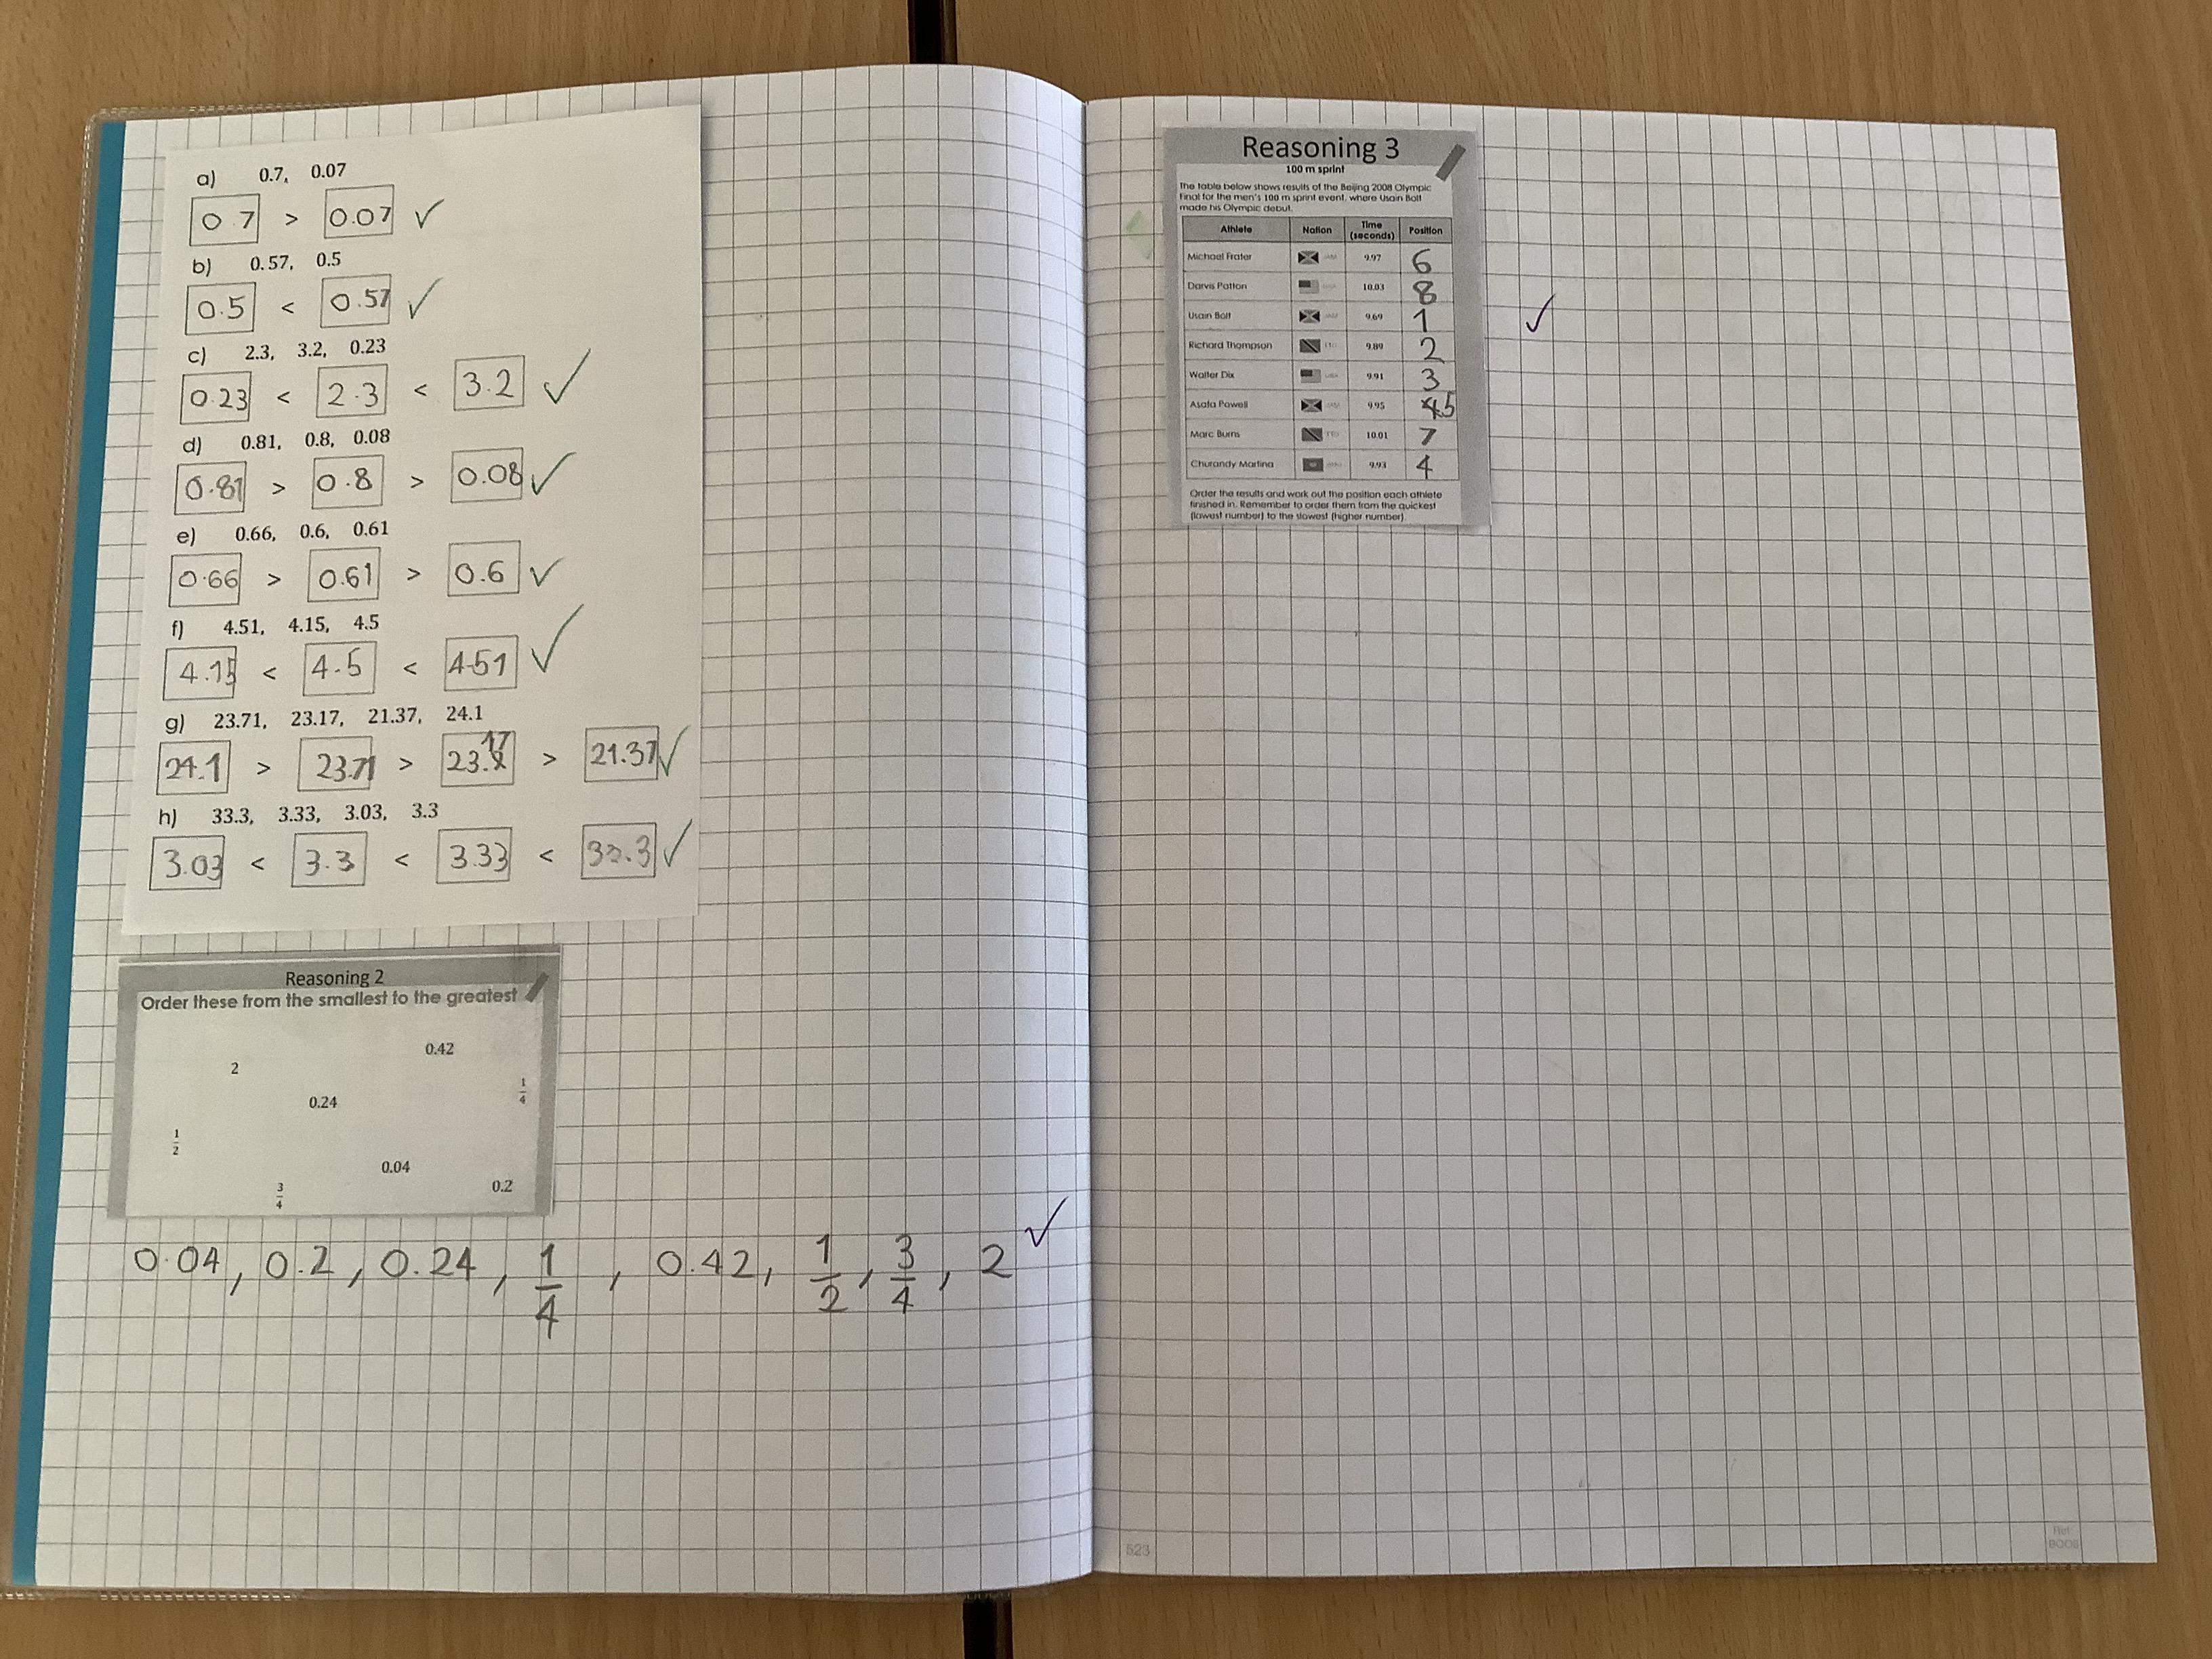 a) 0.7, 0.07
0.7 > 0.07 ✓
b) 0.57, 0.5
0.5 < 0.57 ✓
c) 2.3, 3.2, 0.23
0.23 < 2.3 < 3.2 ✓
d) 0.81, 0.8, 0.08
0.81 > 0.8 > 0.08 ✓
e) 0.66, 0.6, 0.61
0.66 > 0.61 > 0.6 ✓
f) 4.51, 4.15, 4.5
4.15 < 4.5 < 4.51 ✓
g) 23.71, 23.17, 21.37, 24.1
24.1 > 23.71 > 23.17 > 21.37 ✓
h) 33.3, 3.33, 3.03, 3.3
3.03 < 3.3 < 3.33 < 33.3 ✓
Reasoning 2
Order these from the smallest to the greatest
0.42
2
1/4
0.24
1/2
0.04
0.2
3/4
0.04, 0.2, 0.24, 1/4, 0.42, 1/2, 3/4, 2 ✓
Reasoning 3
100 m sprint
The table below shows results of the Beijing 2008 Olympic
final for the men's 100 m sprint event, where Usain Bolt
made his Olympic debut.
Athlete Nation Time (seconds) Position
Michael Frater 9.97 6
Darvis Patton 10.03 8
Usain Bolt 9.69 1 ✓
Richard Thompson 9.89 2
Walter Dix 9.91 3
Asafa Powell 9.95 5
Marc Burns 10.01 7
Churandy Martina 9.93 4
Order the results and work out the position each athlete
finished in. Remember to order them from the quickest
(lowest number) to the slowest (higher number).
523